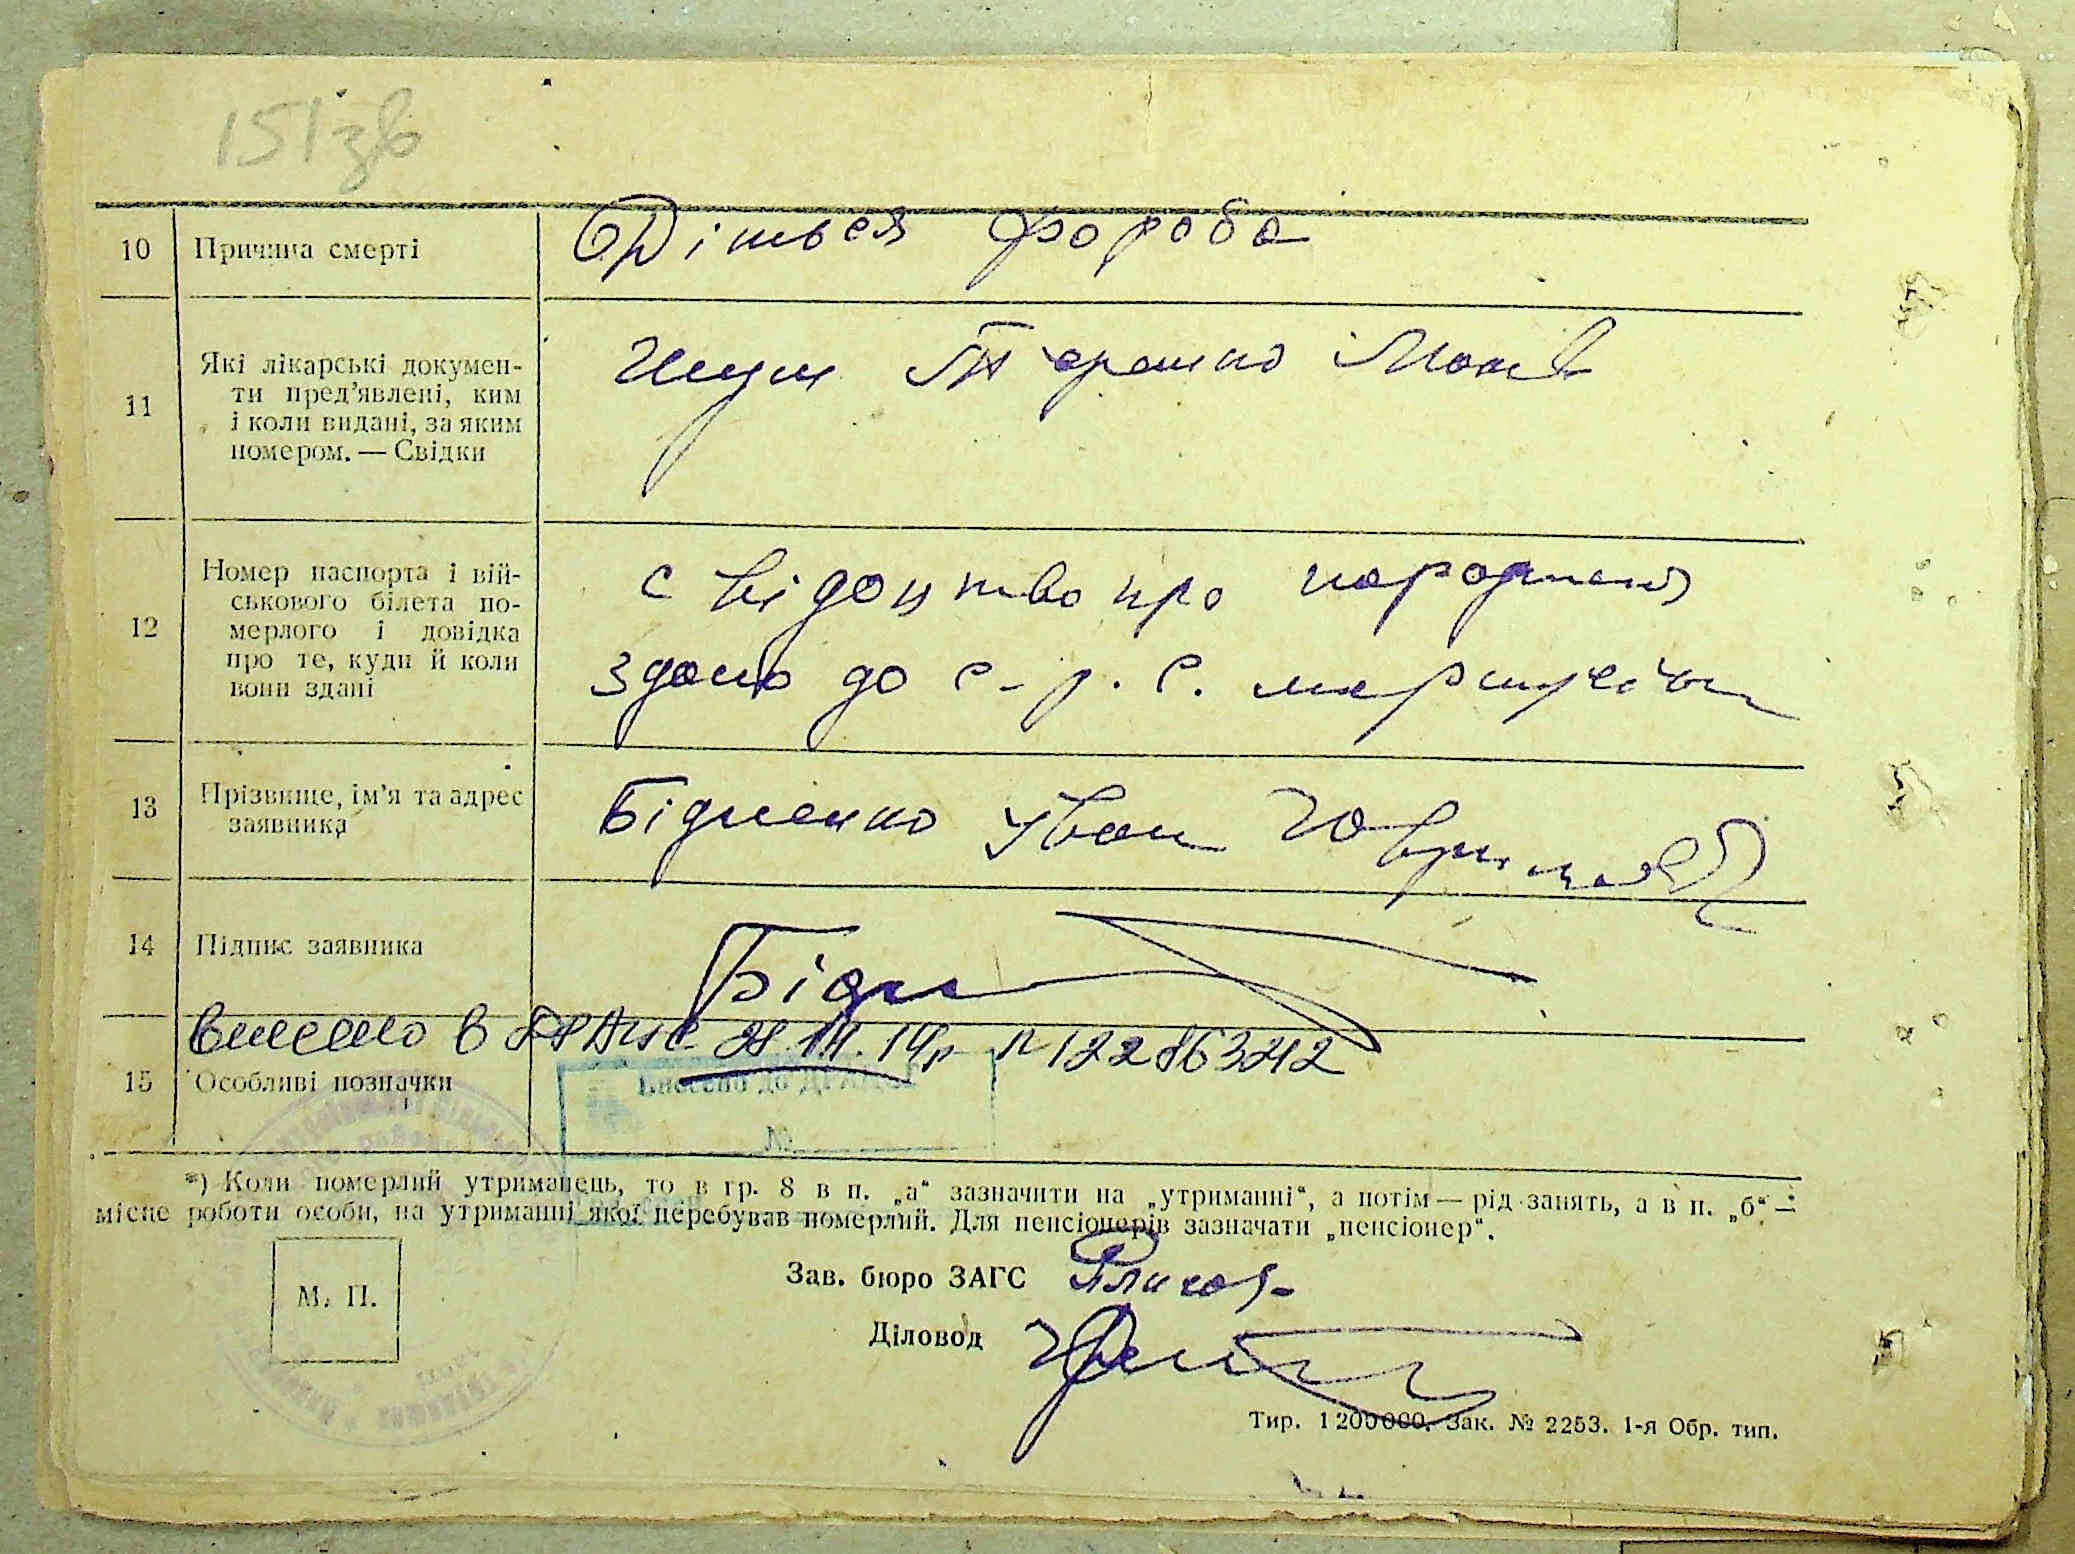 151зв
10 Причина смерті Діться фороба
11 Які лікарські докумен-
ти пред'явлені, ким
і коли видані, за яким
номером. — Свідки
12 Номер паспорта і вій-
ськового білета по-
мерлого і довідка
про те, куди й коли
вони здані
свідоцтво про народженя
здано до с-р. с.
13 Прізвище, ім'я та адрес
заявника
Бідненко Іван
14 Підпис заявника
внесено в ДРАЦС 28.11.14р № 12286342
15 Особливі позначки
Внесено до
№
*) Коли померлий утриманець, то в гр. 8 в п. „а“ зазначити на „утриманні“, а потім — рід занять, а в п. „б“ —
місце роботи особи, на утриманні якої перебував померлий. Для пенсіонерів зазначати „пенсіонер“.
М. П.
Зав. бюро ЗАГС
Діловод
Тир. 1200000. Зак. № 2253. 1-я Обр. тип.